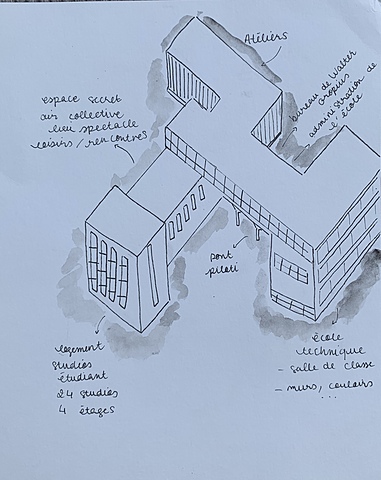 Atéliers
bureau de Walter
Gropius
administration de
l'école
espace secret
air collective
lieu spectacle
loisirs / rencontres
pont
piloti
logement
studios
étudiant
24 studios
4 étages
école
technique
- salle de classe
- murs, couloirs
...